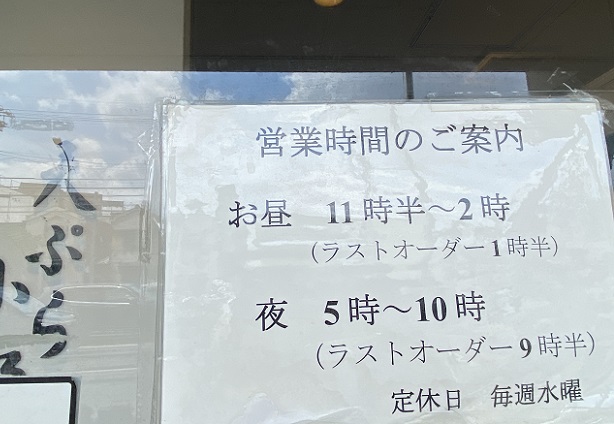 営業時間のご案内
お昼 11時半～2時
(ラストオーダー1時半)
夜 5時～10時
(ラストオーダー9時半)
定休日 毎週水曜
天ぷら